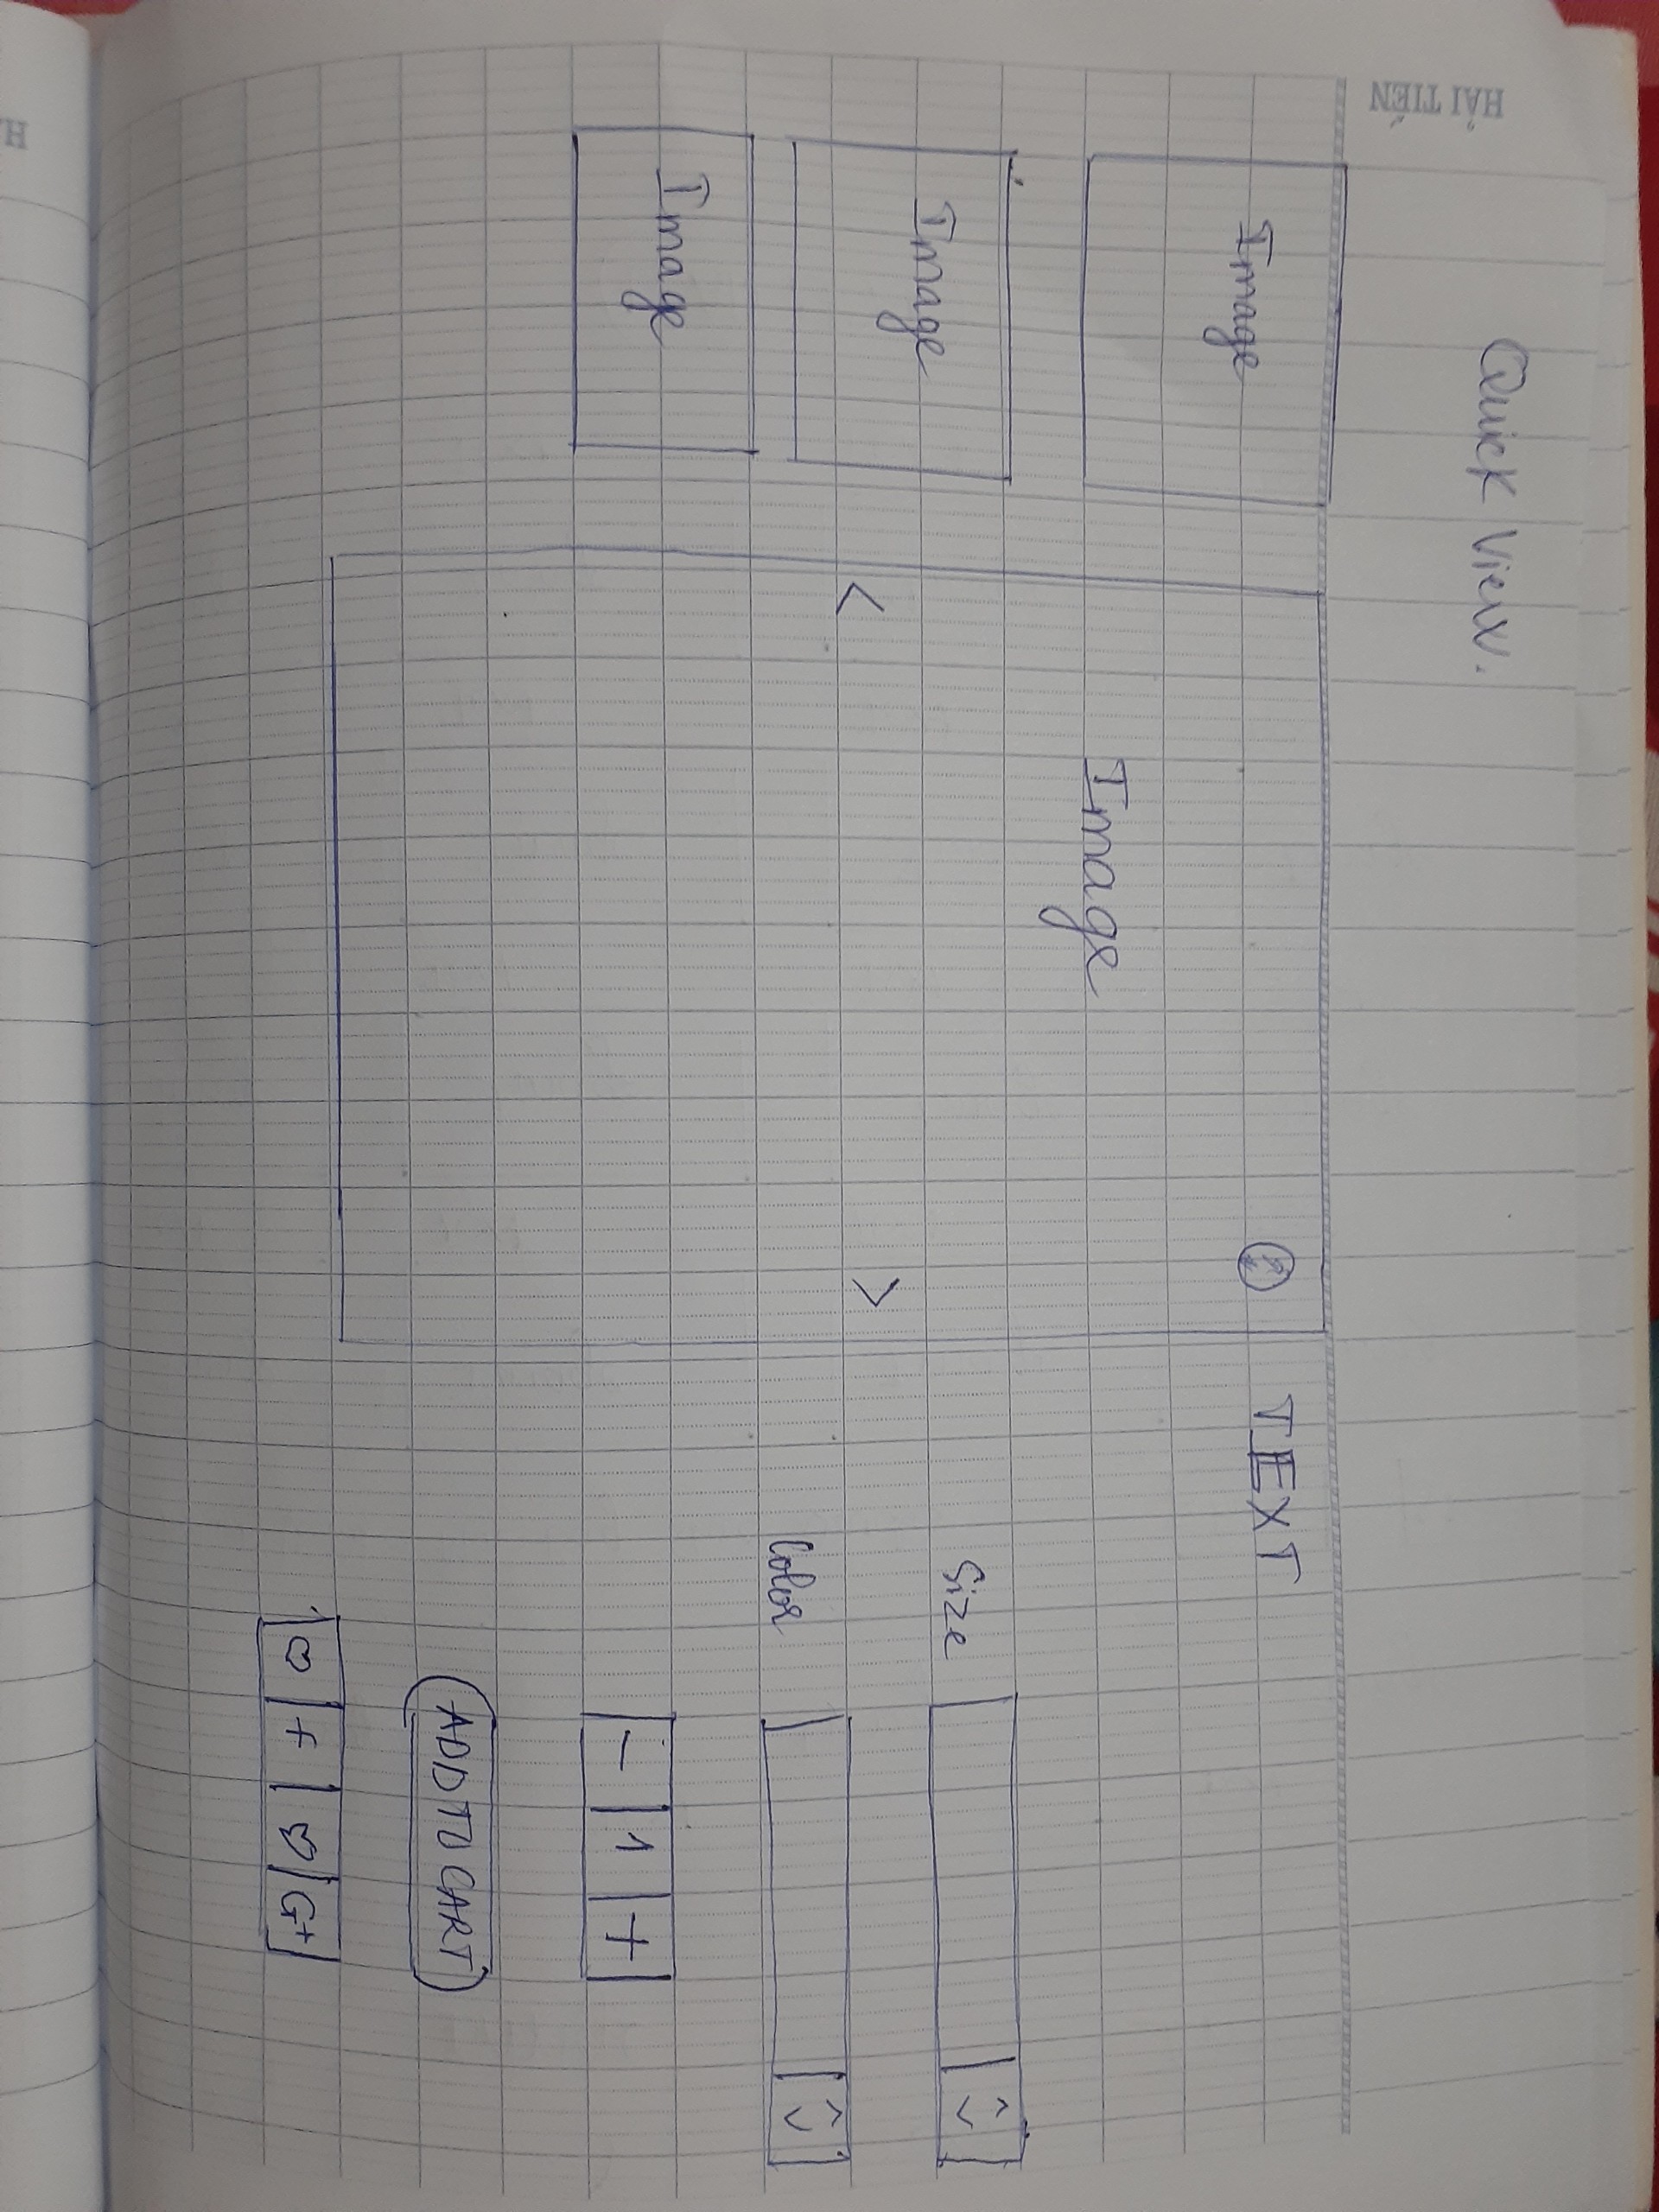 HẢI TIẾN
Quick View.
Image
Image
TEXT
Image
Image
Size
Color
- 1 +
ADD TO CART
f G+